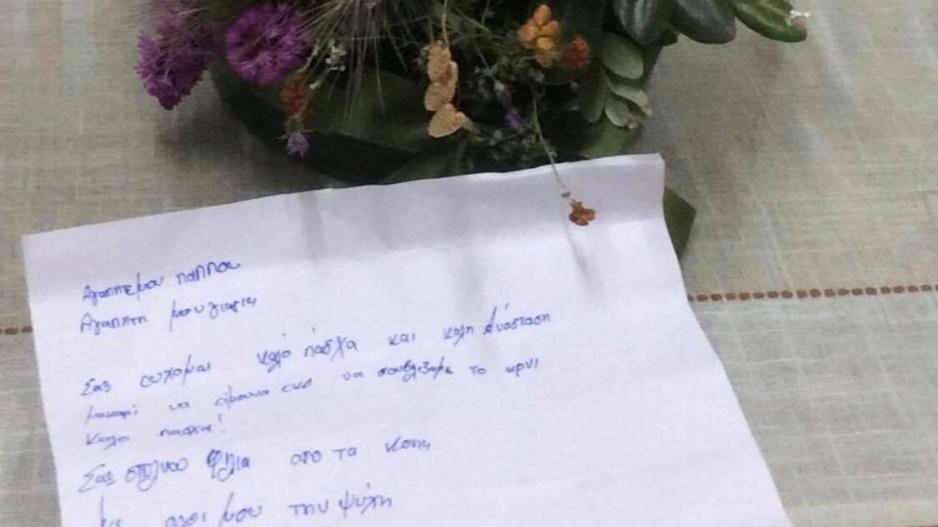 Αγαπητέ μου παππού
Αγαπητή μου γιαγιά
Σας εύχομαι καλό πάσχα και καλή Ανάσταση
μακαρι να ήμουνα εκεί να σουβλίζαμε το αρνι
καλο πασχα!
Σας στέλνου φιλια απο τα
με ολοι μου την ψύχη